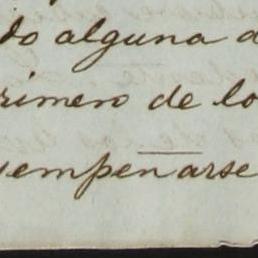 do alguna d
rimero de lo
empeñarse